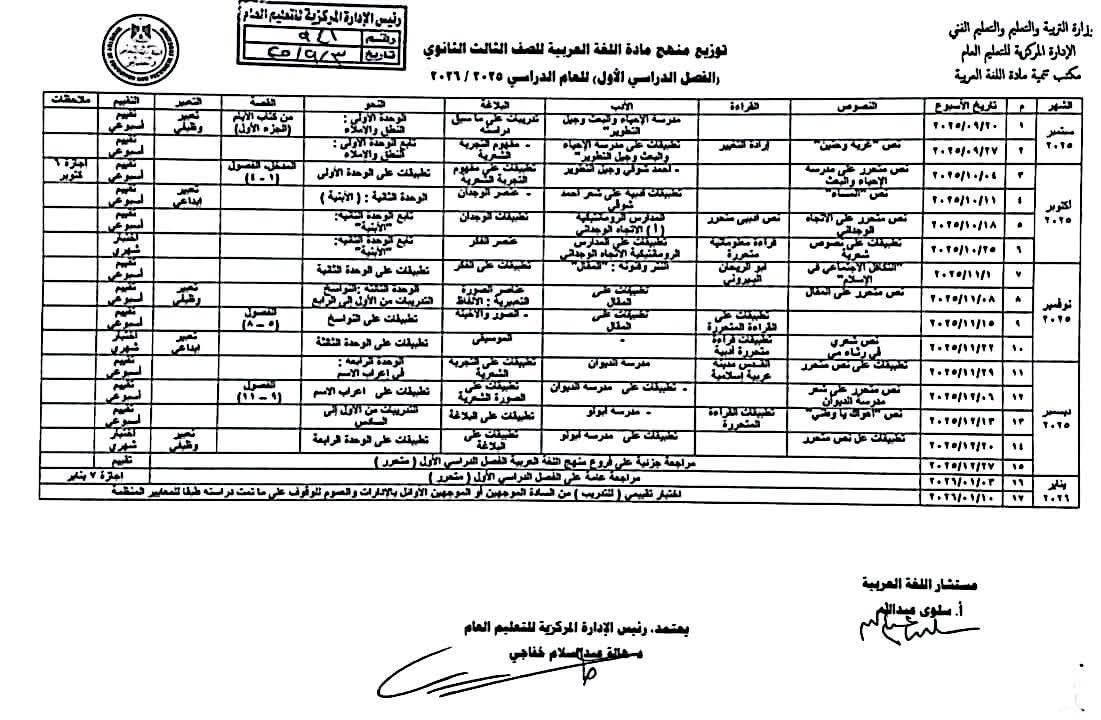 وزارة التربية والتعليم والتعليم الفني
الإدارة المركزية للتعليم العام
مكتب تنمية مادة اللغة العربية
رئيس الإدارة المركزية للتعليم العام
رقم ٩٤١
تاريخ ٢٥/٩/٣
توزيع منهج مادة اللغة العربية للصف الثالث الثانوي
(الفصل الدراسي الأول) للعام الدراسي ٢٠٢٥ / ٢٠٢٦
الشهر م تاريخ الأسبوع النصوص القراءة الأدب البلاغة النحو القصة التعبير التقييم ملاحظات
سبتمبر ٢٠٢٥ ١ ٢٠٢٥/٠٩/٢٠ مدرسة الإحياء والبعث وجيل التطوير" تدريبات على ما سبق دراسته الوحدة الأولى : النطق والاملاء من كتاب الأيام (الجزء الأول) تعبير وظيفي تقييم أسبوعي
٢ ٢٠٢٥/٠٩/٢٧ نص "غربة وحنين" إرادة التغيير تطبيقات على مدرسة الإحياء والبعث وجيل التطوير" - مفهوم التجربة الشعرية تابع الوحدة الأولى : النطق والاملاء تقييم أسبوعي
أكتوبر ٢٠٢٥ ٣ ٢٠٢٥/١٠/٠٤ نص متحرر على مدرسة الإحياء والبعث - احمد شوقي وجيل التطوير تطبيقات على مفهوم التجربة الشعرية تطبيقات على الوحدة الأولى المدخل، الفصول (١ - ٤) تقييم أسبوعي اجازة ٦ كتوبر
٤ ٢٠٢٥/١٠/١١ نص "المساء" تطبيقات أدبية على شعر أحمد شوقي - عنصر الوجدان الوحدة الثانية : ( الأبنية ) تعبير ابداعي تقييم أسبوعي
٥ ٢٠٢٥/١٠/١٨ نص متحرر على الاتجاه الوجداني نص ادبي متحرر المدارس الرومانتيكية (أ) الاتجاه الوجداني تطبيقات الوجدان تابع الوحدة الثانية: "الأبنية" تقييم أسبوعي
٦ ٢٠٢٥/١٠/٢٥ تطبيقات على نصوص شعرية قراءة معلوماتية متحررة تطبيقات على المدارس الرومانتيكية الاتجاه الوجداني عنصر الفكر تابع الوحدة الثانية: "الأبنية" اختبار شهري
نوفمبر ٢٠٢٥ ٧ ٢٠٢٥/١١/١ "التكافل الاجتماعي في الإسلام" ابو الريحان البيروني النثر وفنونه : "المقال" تطبيقات على الفكر تطبيقات على الوحدة الثانية تقييم أسبوعي
٨ ٢٠٢٥/١١/٠٨ نص متحرر على المقال تطبيقات على المقال عناصر الصورة التعبيرية : الألفاظ الوحدة الثالثة :النواسخ التدريبات من الأول إلى الرابع تعبير وظيفي تقييم أسبوعي
٩ ٢٠٢٥/١١/١٥ تطبيقات على القراءة المتحررة تطبيقات على المقال - الصور والأخيلة تطبيقات على النواسخ الفصول (٥ – ٨) تقييم أسبوعي
١٠ ٢٠٢٥/١١/٢٢ نص شعري في رثاء مي تطبيقات قراءة متحررة أدبية - الموسيقى تطبيقات على الوحدة الثالثة تعبير ابداعي اختبار شهري
ديسمبر ٢٠٢٥ ١١ ٢٠٢٥/١١/٢٩ تطبيقات على نص متحرر القدس مدينة عربية إسلامية مدرسة الديوان تطبيقات على التجربة الشعرية الوحدة الرابعة: في اعراب الاسم تقييم أسبوعي
١٢ ٢٠٢٥/١٢/٠٦ نص متحرر على شعر مدرسة الديوان - تطبيقات على مدرسة الديوان تطبيقات على الصورة الشعرية تطبيقات على اعراب الاسم الفصول (٩ – ١١) تقييم أسبوعي
١٣ ٢٠٢٥/١٢/١٣ نص "أهواك يا وطني" تطبيقات القراءة المتحررة - مدرسة أبولو تطبيقات على البلاغة التدريبات من الأول إلى السادس تقييم أسبوعي
١٤ ٢٠٢٥/١٢/٢٠ تطبيقات عل نص متحرر تطبيقات على مدرسة أبولو تطبيقات على البلاغة تطبيقات على الوحدة الرابعة تعبير وظيفي اختبار شهري
١٥ ٢٠٢٥/١٢/٢٧ مراجعة جزئية على فروع منهج اللغة العربية الفصل الدراسي الأول ( متحرر ) تقييم
يناير ٢٠٢٦ ١٦ ٢٠٢٦/٠١/٠٣ مراجعة عامة على الفصل الدراسي الأول ( متحرر ) اجازة ٧ يناير
١٧ ٢٠٢٦/٠١/١٠ اختبار تقييمي ( للتدريب ) من السادة الموجهين أو الموجهين الأوائل بالإدارات والعموم للوقوف على ما تمت دراسته طبقا للمعايير المنظمة
مستشار اللغة العربية
أ. سلوى عبدالله
يعتمد، رئيس الإدارة المركزية للتعليم العام
د. هالة عبدالسلام خفاجي